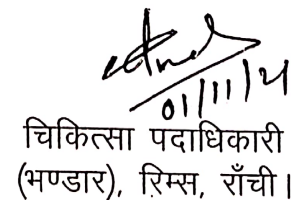 01/11/21
चिकित्सा पदाधिकारी
(भण्डार), रिम्स, राँची।